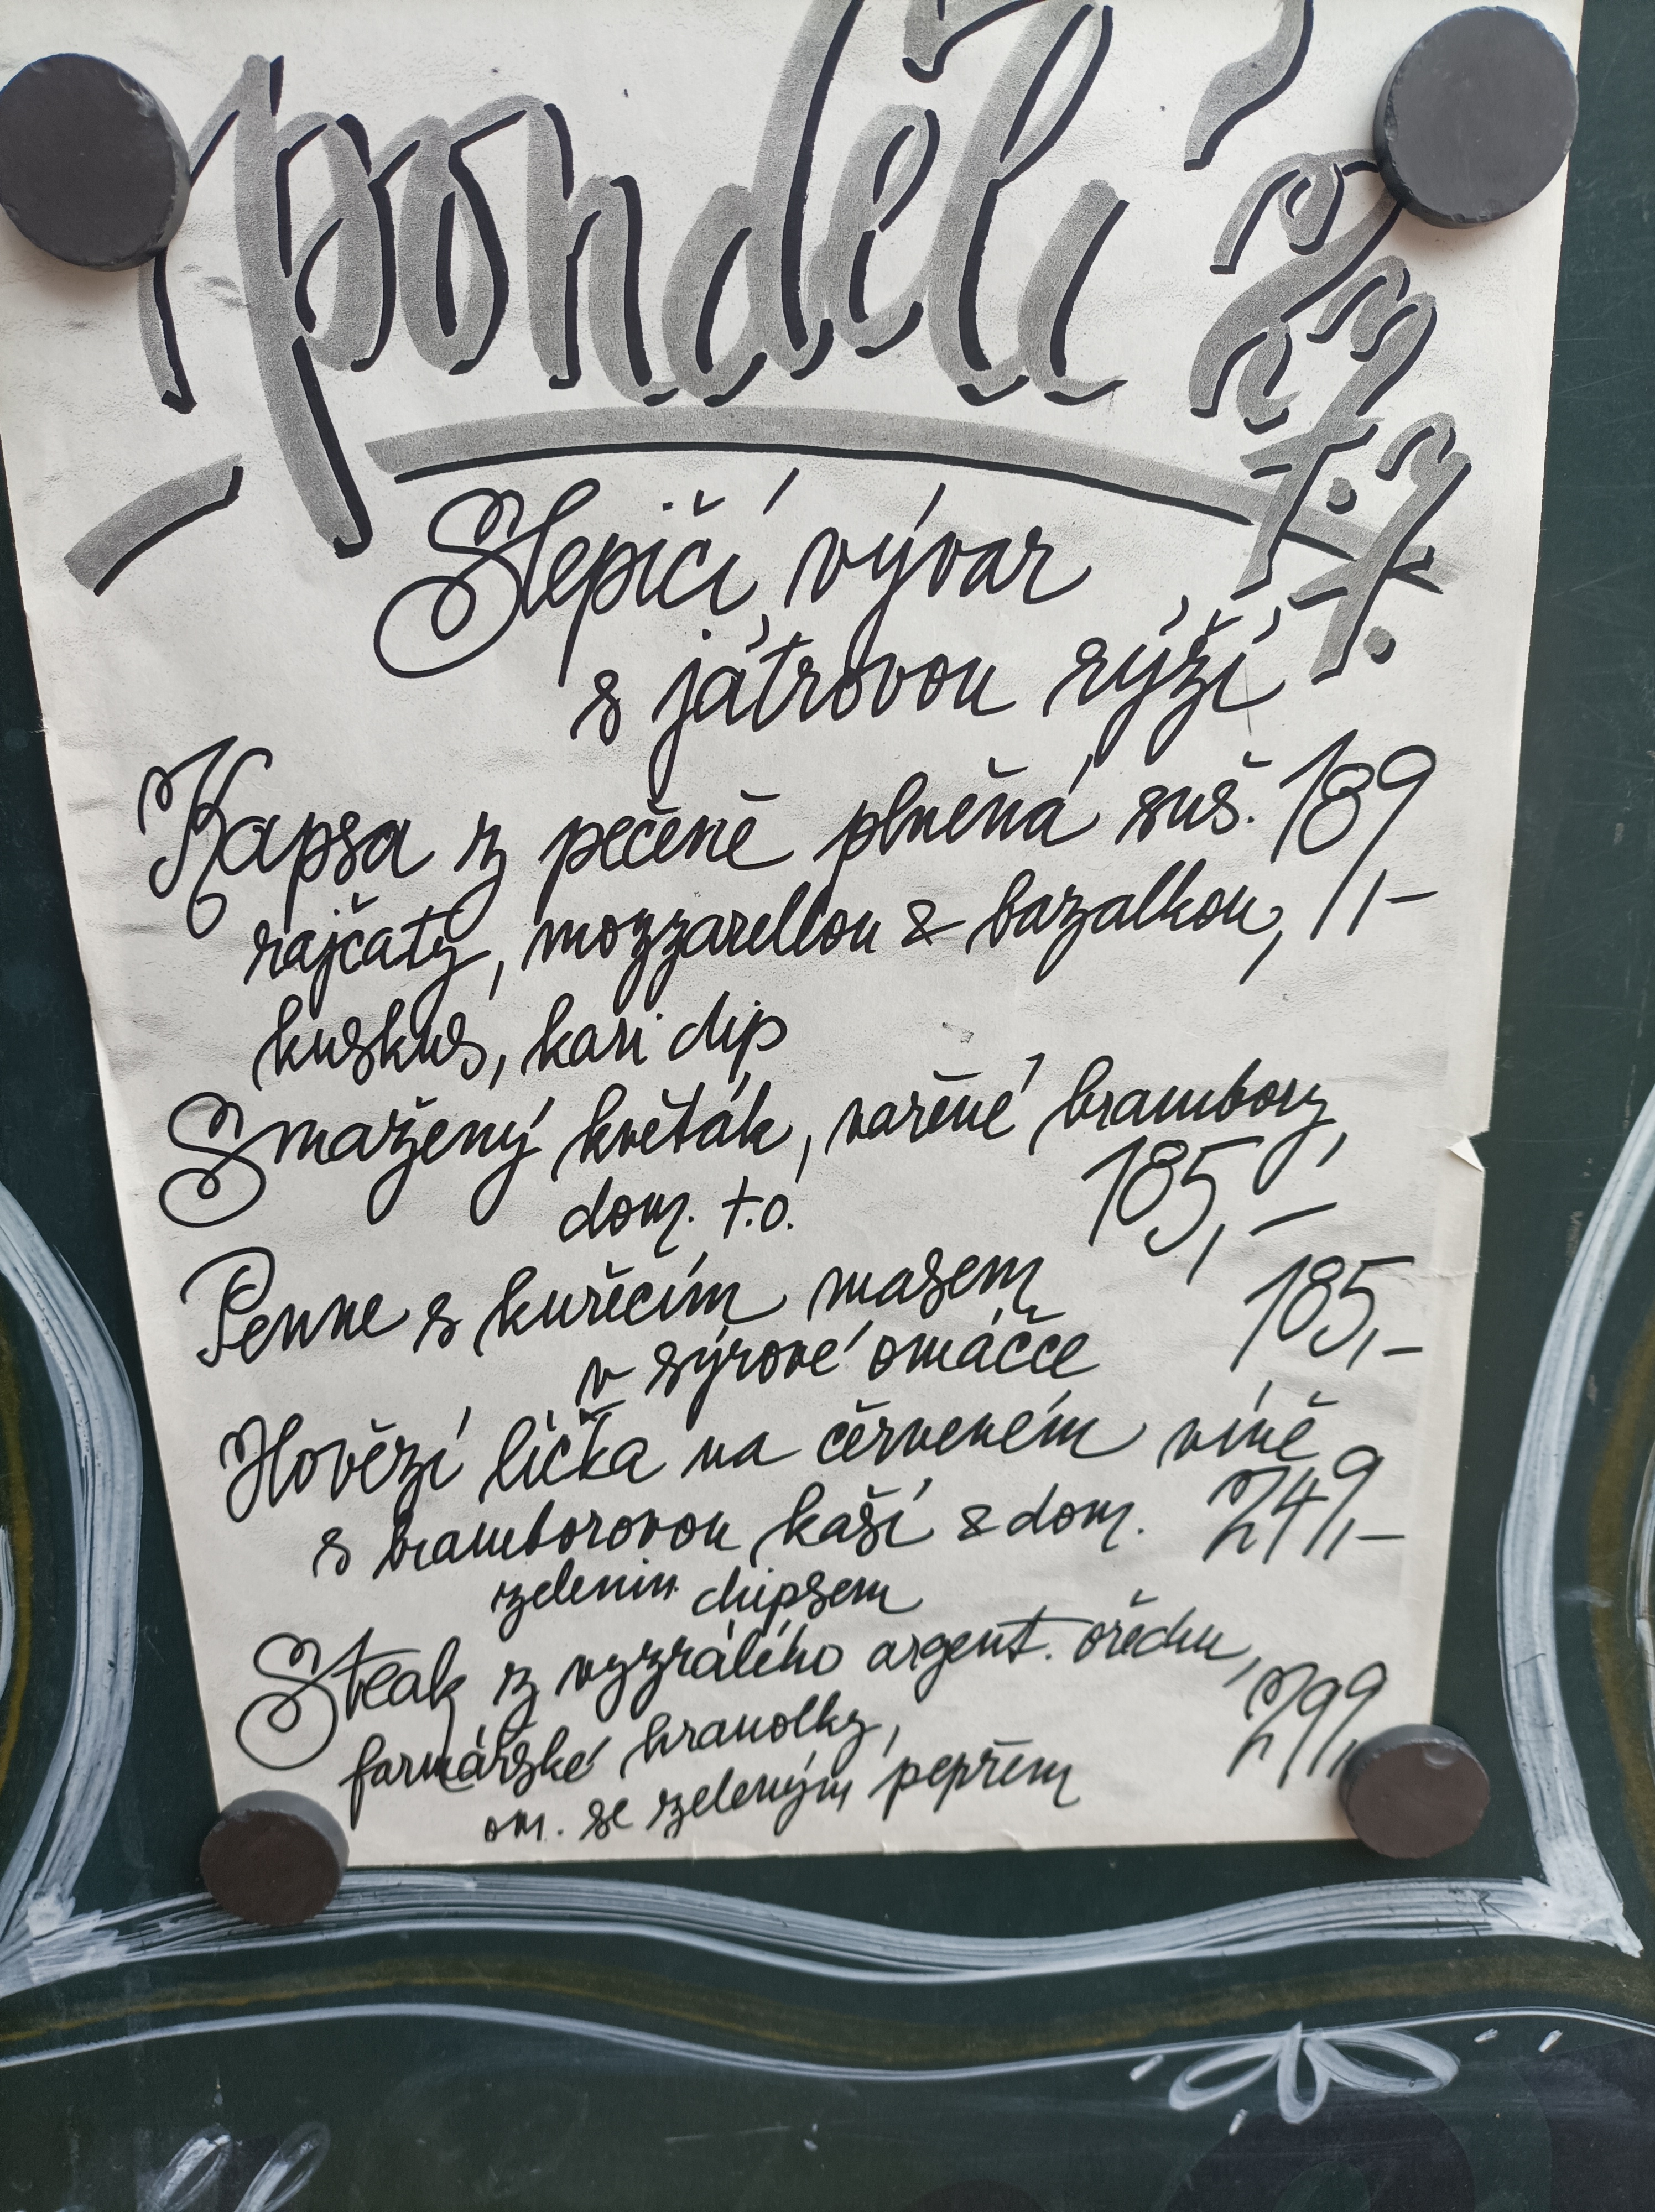 pondělí 27.7.
Slepičí vývar
s játrovou rýží
Kapsa z pečeně plněná suš. 189,-
rajčaty, mozzarellou & bazalkou,
kuskus, kari dip
Smažený květák, vařené brambory,
dom. t.o. 185,-
Penne s kuřecím masem 185,-
v sýrové omáčce
Hovězí líčka na červeném víně
s bramborovou kaší & dom. 249,-
zelenin. chipsem
Steak z vyzrálého argent. ořechu,
farmářské hranolky, 299,
om. se zeleným pepřem